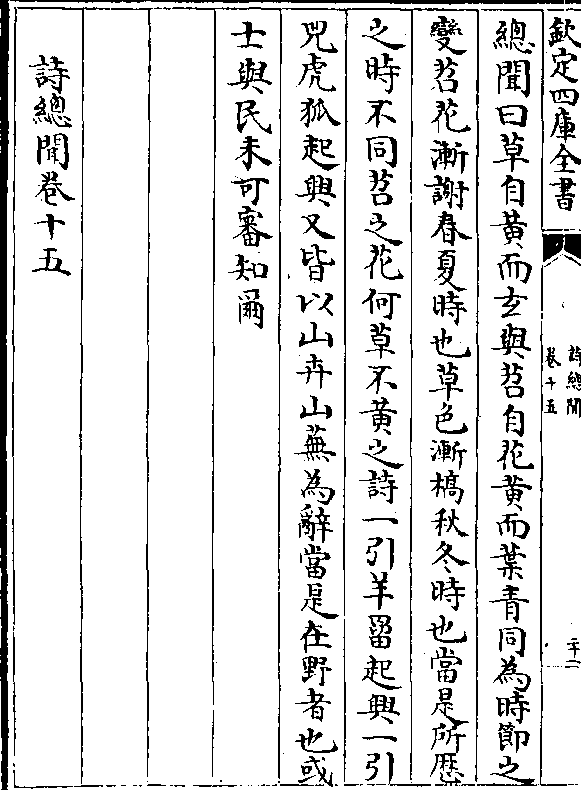 欽定四庫全書
詩總聞
卷十五
二十二
總聞曰草自黃而𤣥與苕自花黃而葉青同為時節之
變苕花漸謝春夏時也草色漸槁秋冬時也當是所歷
之時不同苕之花何草不黃之詩一引羊罶起興一引
兕虎狐起興又皆以山卉山蕪為辭當是在野者也或
士與民未可審知爾
詩總聞卷十五